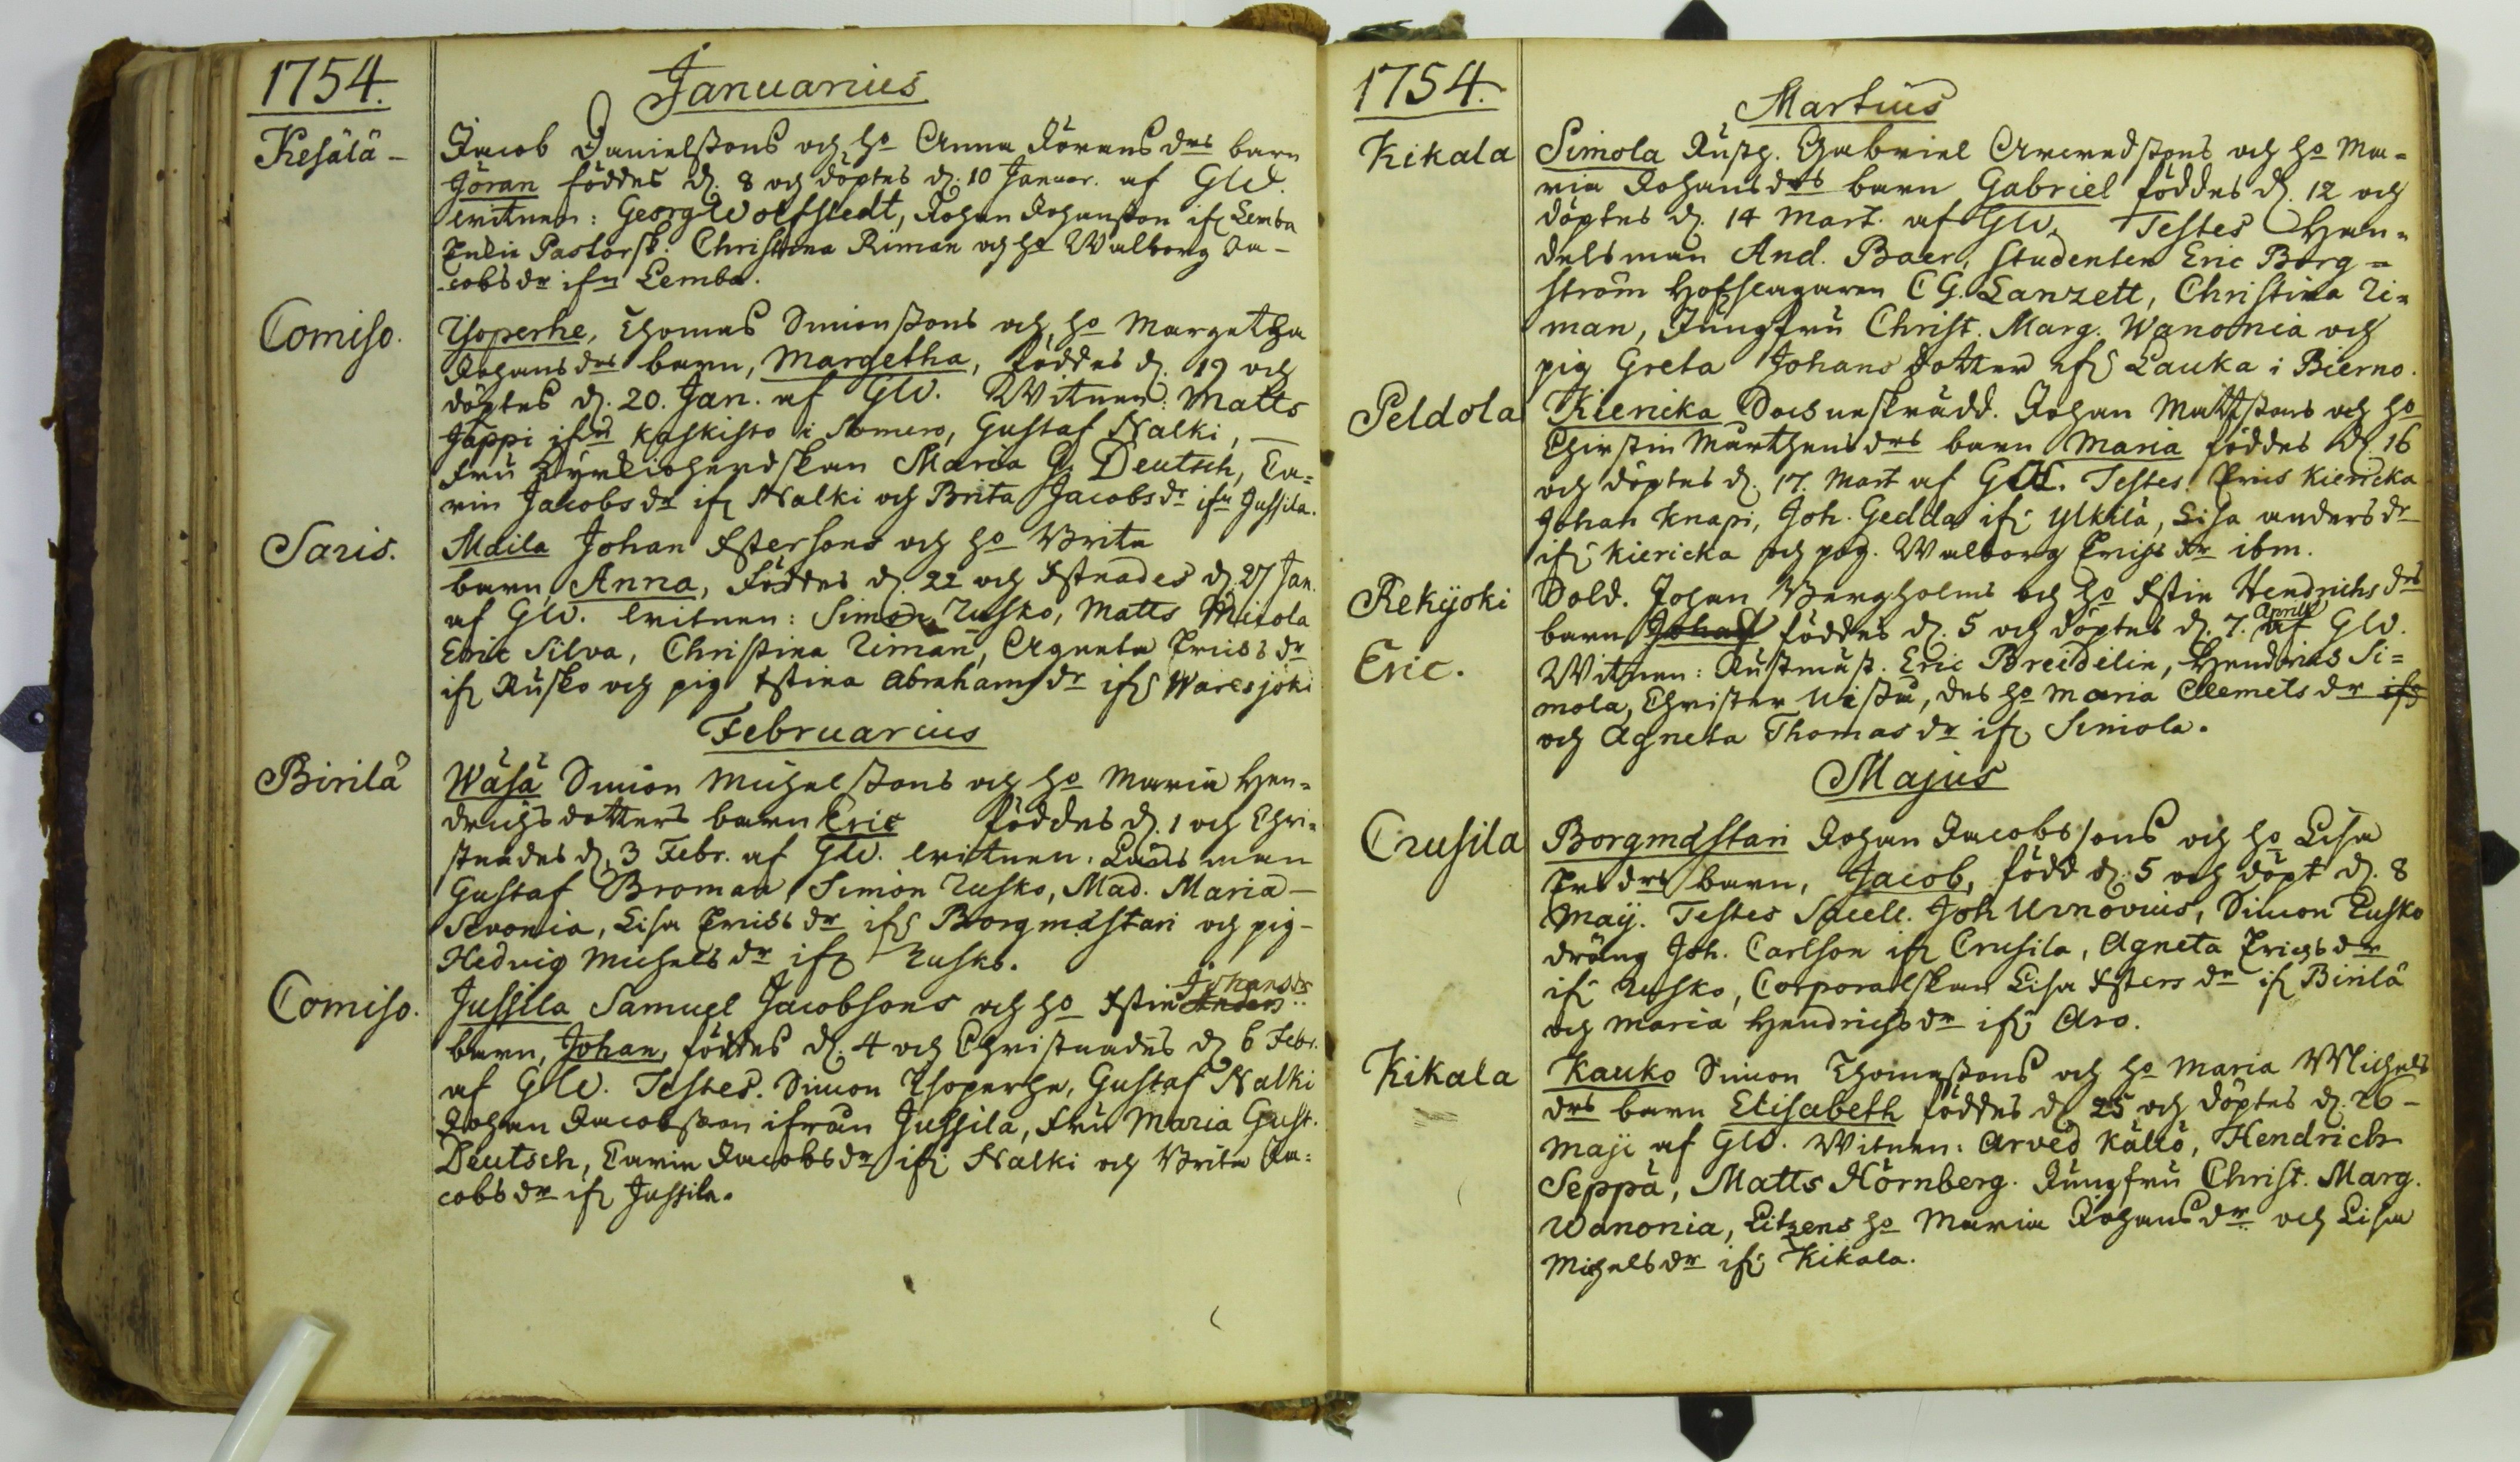 1754.
Januarius
Kesälä -
Jacob Danielssons och ho Anna Jörans drs barn
Jöran föddes d. 8 och döptes d. 10 Januar. af GW.
witnen: Georg Wolfstedt, Johan Johansson ifr Lemba
Enkie Pastorsk. Christina Riman och ho Walborg Ja-
cobs dr ifrn Lemba.
Comiso.
Isoperhe, Thomas Simonssons och ho Margetha
Johans drs barn, Margetha, föddes d. 19 och
döptes d. 20. Jan. af GW. Witnen: Matts
Jäppi ifrn Kaskisto i Somero, Gustaf Nalki, —
Fru Maria G. Deutsch, Ca=
rin Jacobs dr ifr Nalki och Brita Jacobs dr ifrn Jussila.
Saris.
Maila Johan Isterssons och ho Brita
barn, Anna, föddes d. 22 och Xstnades d. 27 Jan.
af GW. witnen: Simon Rusko, Matts Mitola
Eric Silva, Christina Riman, Agneta Erics dr
ifr Rusko och pig Xstina Abrahams dr ifr Waresjoki
Februarius
Birilä
Wäsä Simon Michelssons och ho Maria Hen=
drichs dotters barn Eric föddes d. 1 och Chri=
stnades d. 3 Febr. af GW. witnen: Länsman
Gustaf Broman, Simon Rusko, Mad. Maria —
Lisa Erics dr ifr Borgmästari och pig-
Hedvig Michels dr ifr Rusko.
Comiso.
Jussila Samuel Jacobsons och ho Xstin Anders Johans dr
barn, Johan, föddes d. 4 och Christnades d 6 Febr.
af GW. Testes. Simon Isoperhe, Gustaf Nalki
Johan Jacobsson ifrån Jussila, Fru Maria Gust.
Deutsch, Carin Jacobs dr ifr Nalki och Brita Ja=
cobs dr ifr Jussila.
1754.
Martius
Kikala
Simola Rusth. Gabriel Arvedssons och ho Ma=
ria Johans drs barn Gabriel föddes d. 12 och
döptes d. 14 Mart. af GW. Testes Han=
delsman And. Baer, Studenten Eric Borg=
ström Hofslagaren C G. Lanzett, Christina Ri=
man, Jungfru Christ. Marg. Wanonia och
pig Greta Johans dotter ifr Lauka i Bierno.
Peldola
Kiericka Sochneskrädd. Johan Mattssons och ho
Chirstin Mårthens drs barn Maria föddes d. 16
och döptes d. 17. Mart af GW. Testes. Erics Kiericka
Johan Knapi, Joh. Gedda ifr Ylkilä, Lisa Anders dr
ifr Kiericka och pig. Walborg Erics dr ibm.
Rekijoki
Sold. Johan Bergholms och ho Xstin Hendrichs drs
barn Johan föddes d. 5 och döptes d. 7. Aprill af GW.
Eric.
Witnen: Rustmäst. Eric Breidelin, Hendrics Si=
mola, Christer Uistu, des ho Maria Clemets dr ifr
och Agneta Thomas dr ifr Simola.
Majus
Crusila
Borgmästari Johan Jacobssons och ho Lisa
Er. drs barn, Jacob, född d. 5 och döpt d. 8
May. Testes Sacell. Joh Urnovius, Simon Rusko
dräng Joh. Carlson ifr Crusila, Agneta Erichs dr
ifr Rusko, Corporalskan Lisa Xsters dr ifr Birilä
och Maria Hendrichs dr ifr Aro.
Kikala
Kauko Simon Thomassons och ho Maria Michels
drs barn Elisabeth föddes d 25 och döptes d. 26 -
Maji af GW. Witnen: Arved Källö, Hendrich
Seppä, Matts Hörnberg. Jungfru Christ. Marg.
Wanonia, Litzens ho Maria Johans dr och Lisa
Michels dr ifr Kikala.